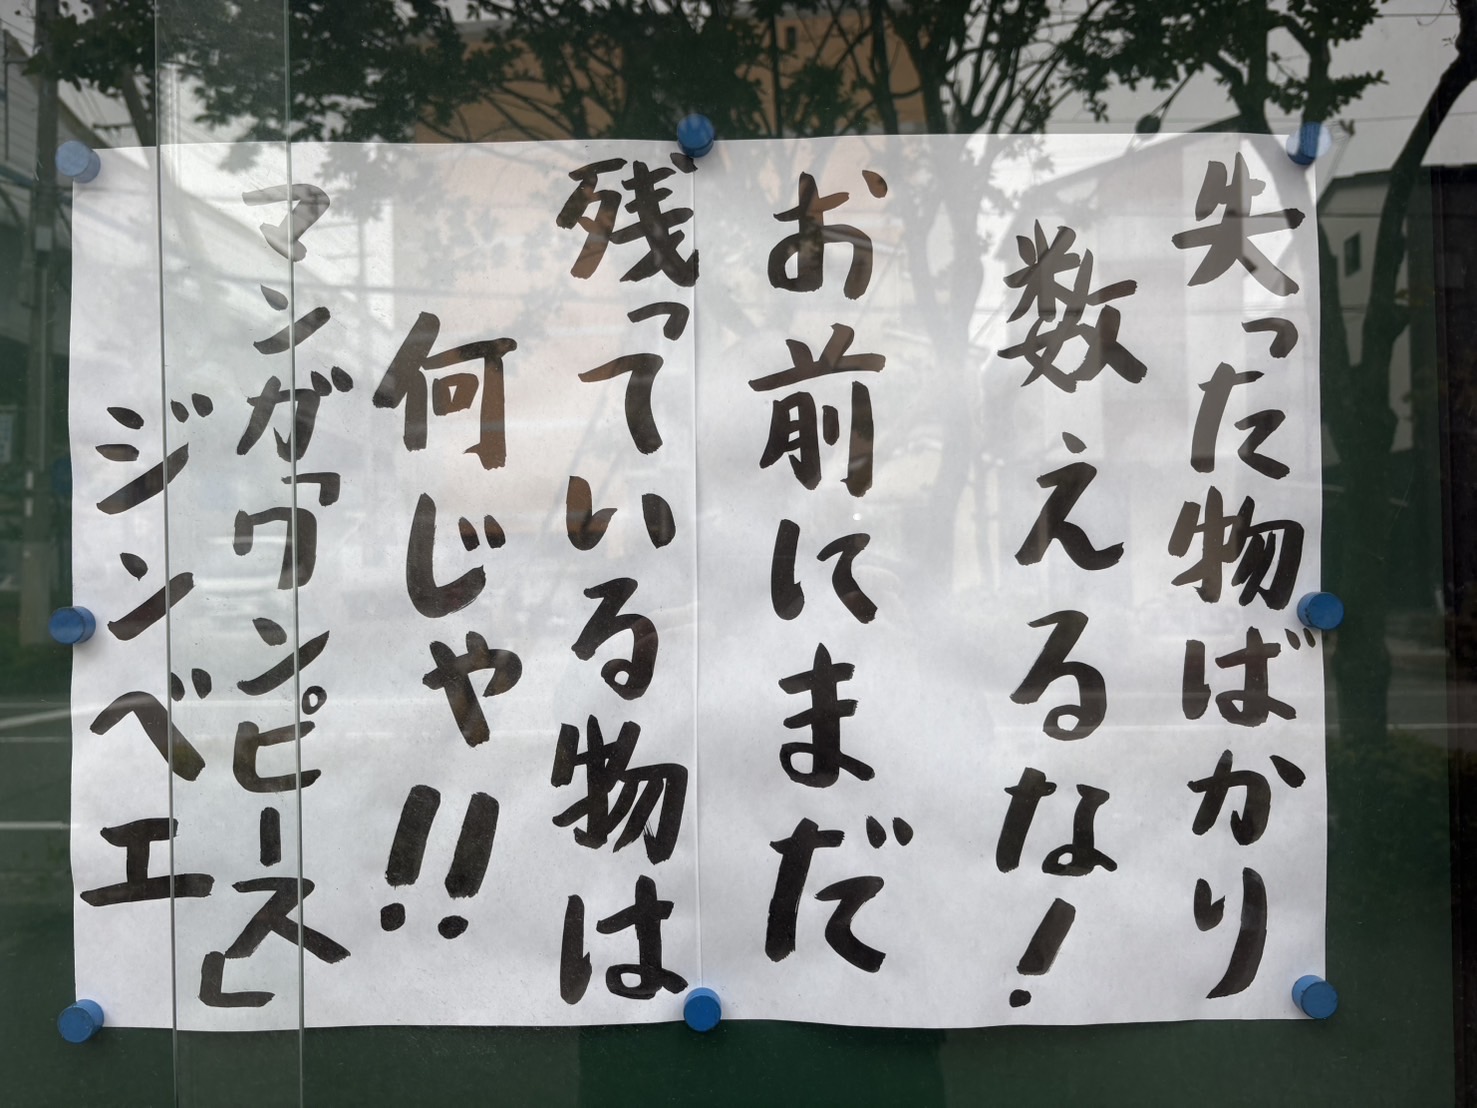 失った物ばかり
数えるな!
お前にまだ
残っている物は
何じゃ!!
マンガ「ワンピース」
ジンベエ